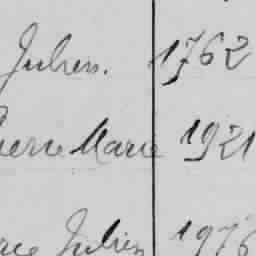 Julien. 1762
Pierre Marie 1921
Julien 1976